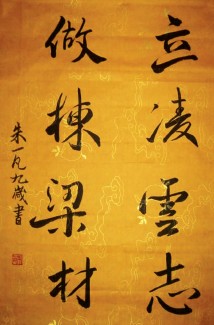 立凌雲志
做棟梁材
朱一凡九歲書